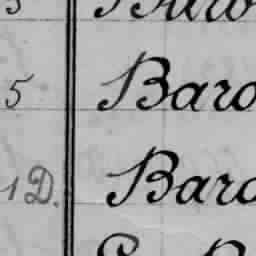 5 Baro
1 D. Baro